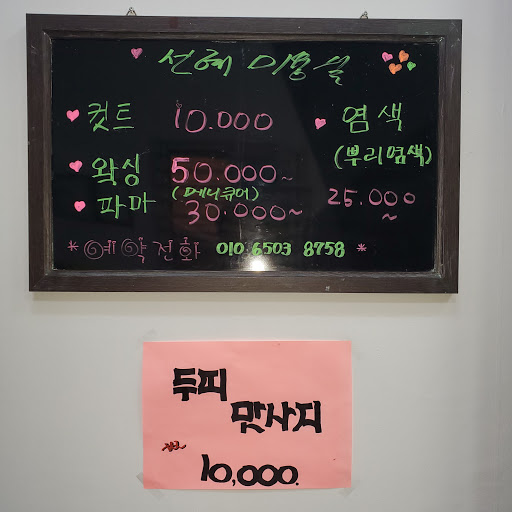 선혜 미용실
컷트 10.000
염색
(뿌리염색)
25.000~
왁싱 50.000~
(메니큐어)
파마 30.000~
*예약전화 010 6503 8758 *
두피
맛사지
10,000.